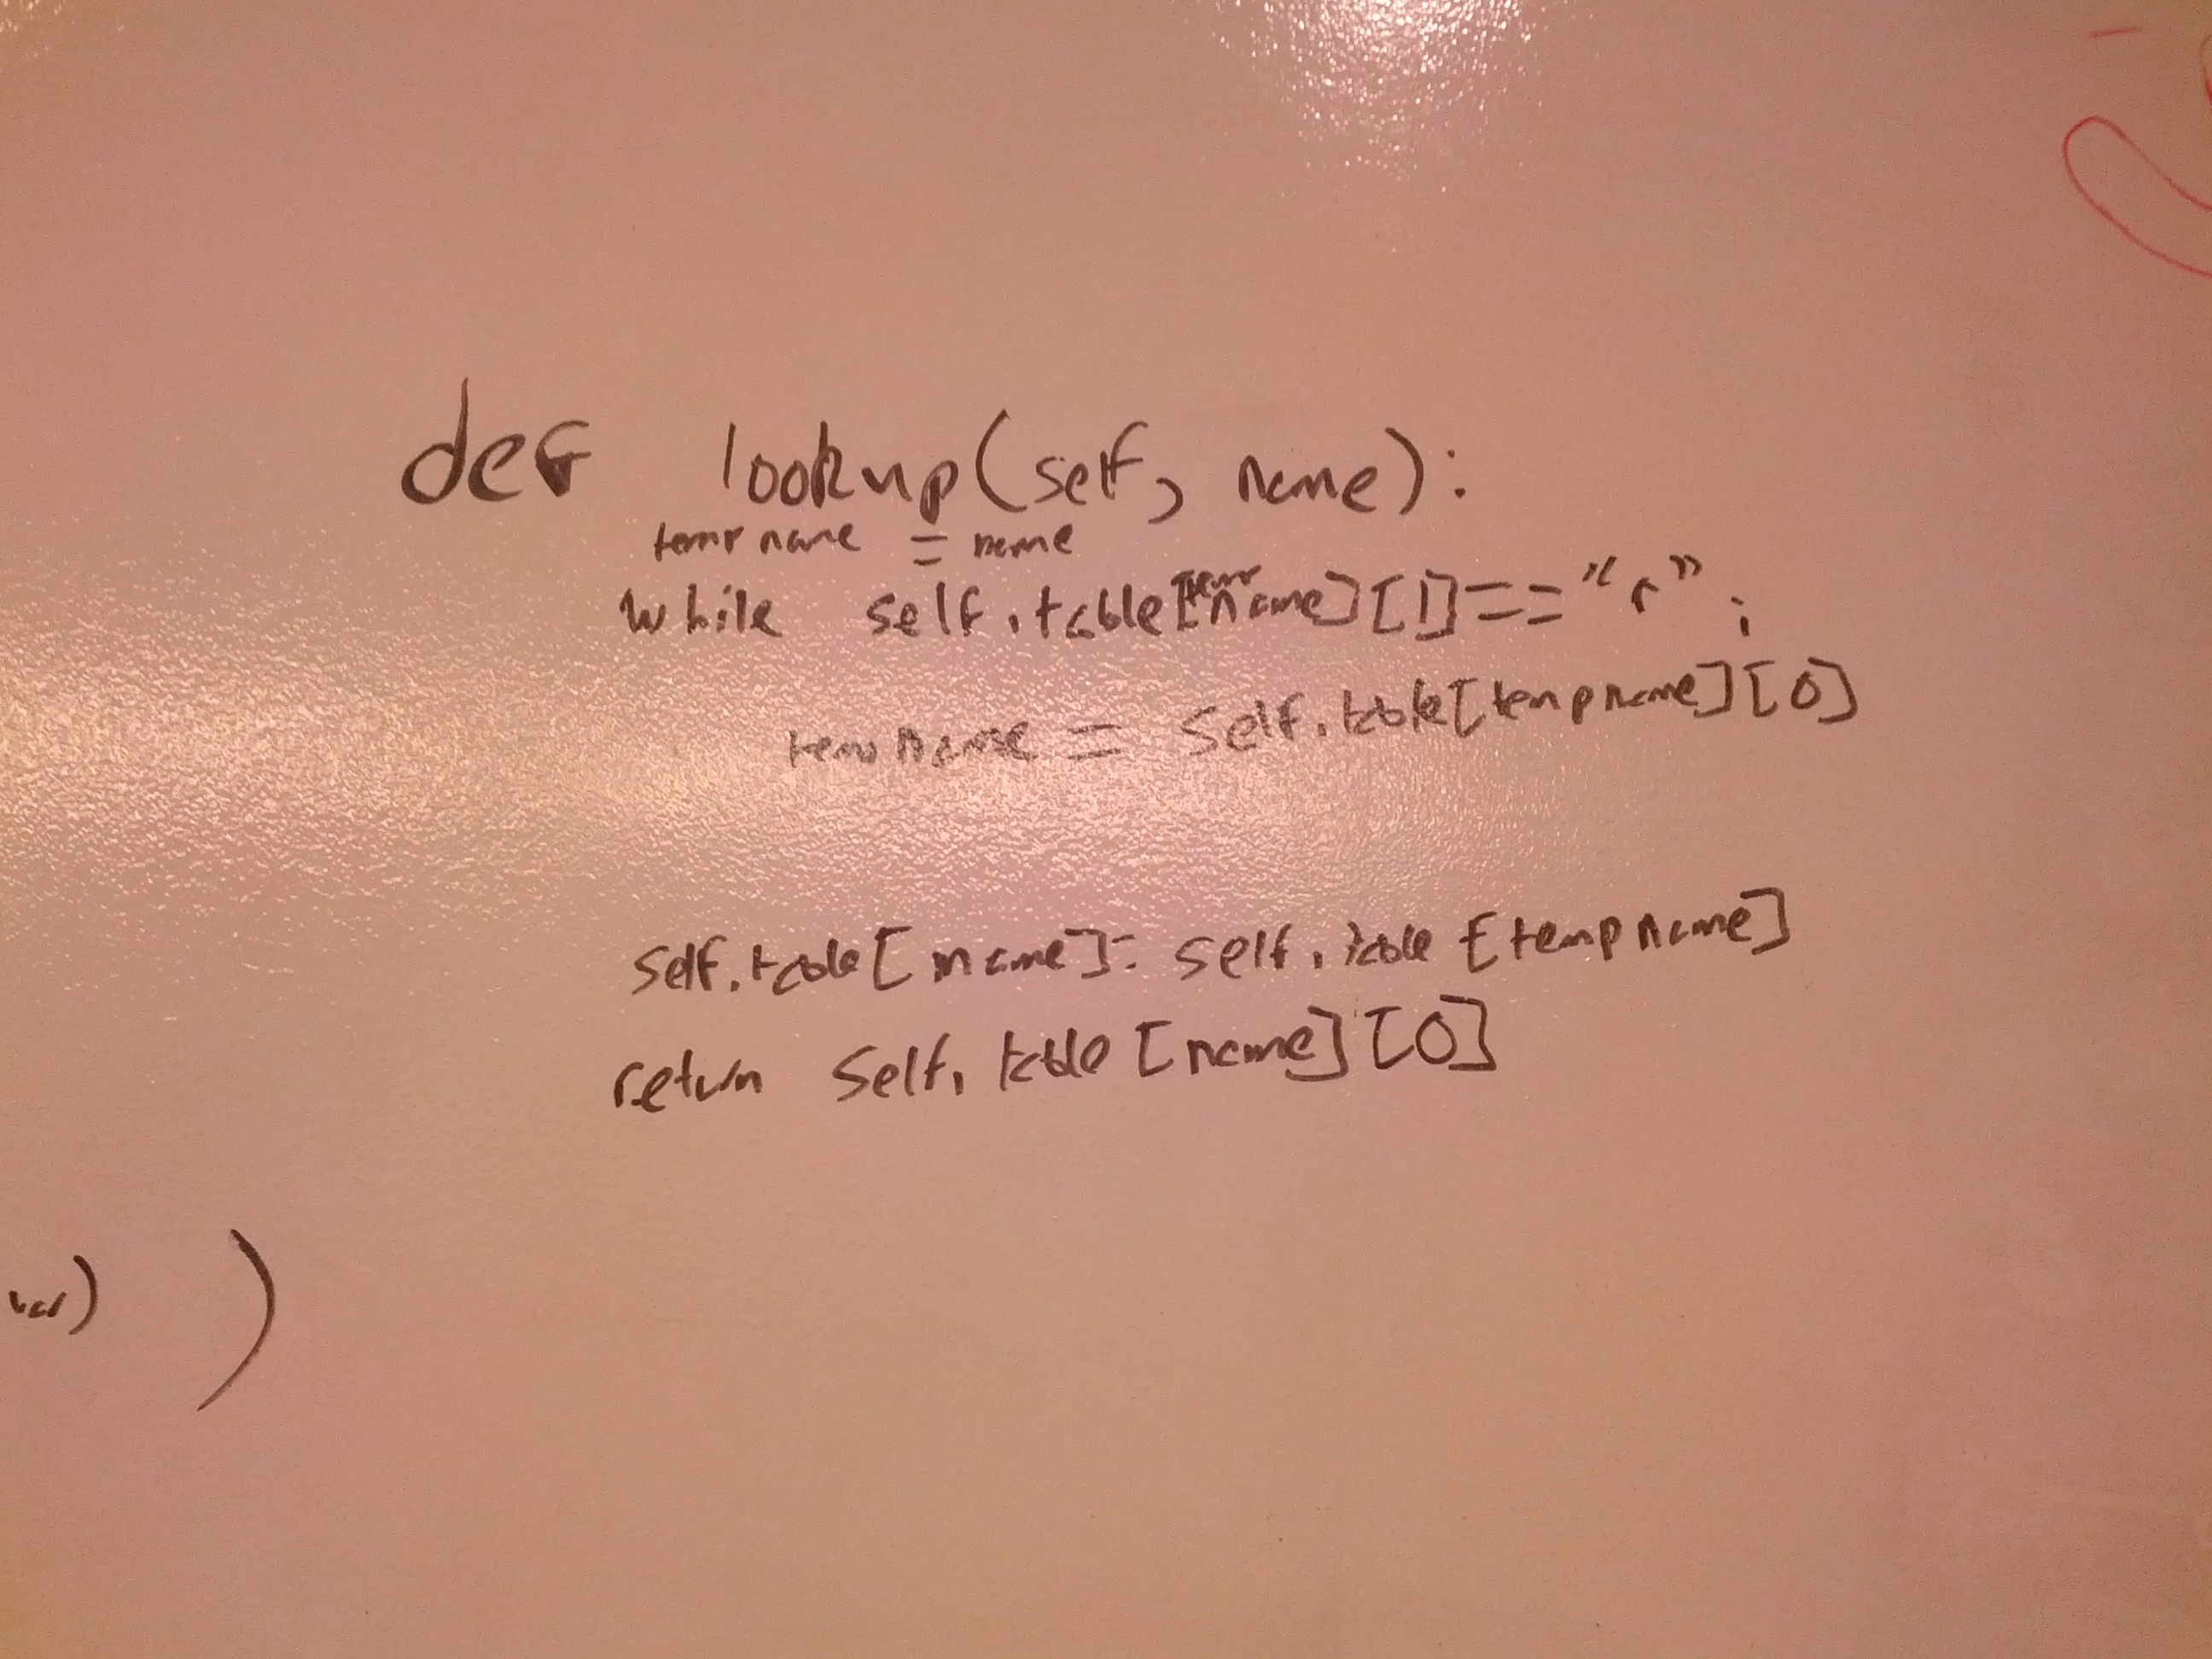 def lookup(self, name):
tempname = name
while self.table[tempname][1]=="r":
tempname = self.table[tempname][0]
self.table[name]= self.table[tempname]
return self.table[name][0]
var) )